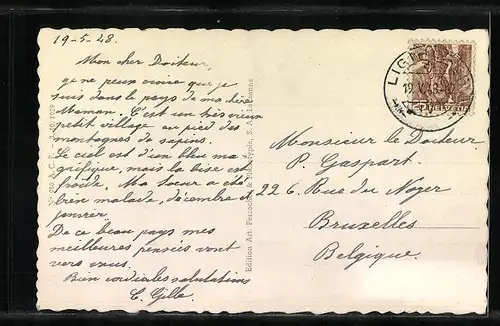 19-5-48.
Mon cher Docteur,
je ne peux croire que je
suis dans le pays de ma chère
Maman. C'est un très vieux
petit village au pied des
montagnes de sapins.
Le ciel est d'un bleu ma
gnifique, mais la bise est
froide. Ma soeur a été
bien malade, décembre et
janvier.
De ce beau pays mes
meilleures pensées vont
vers vous.
Bien cordiales salutations
C. Gille.
Edition Art. Perrochet S. A. Lausanne
HELVETIA
Monsieur le Docteur
P. Gaspart.
226. Rue du Noyer
Bruxelles
Belgique.